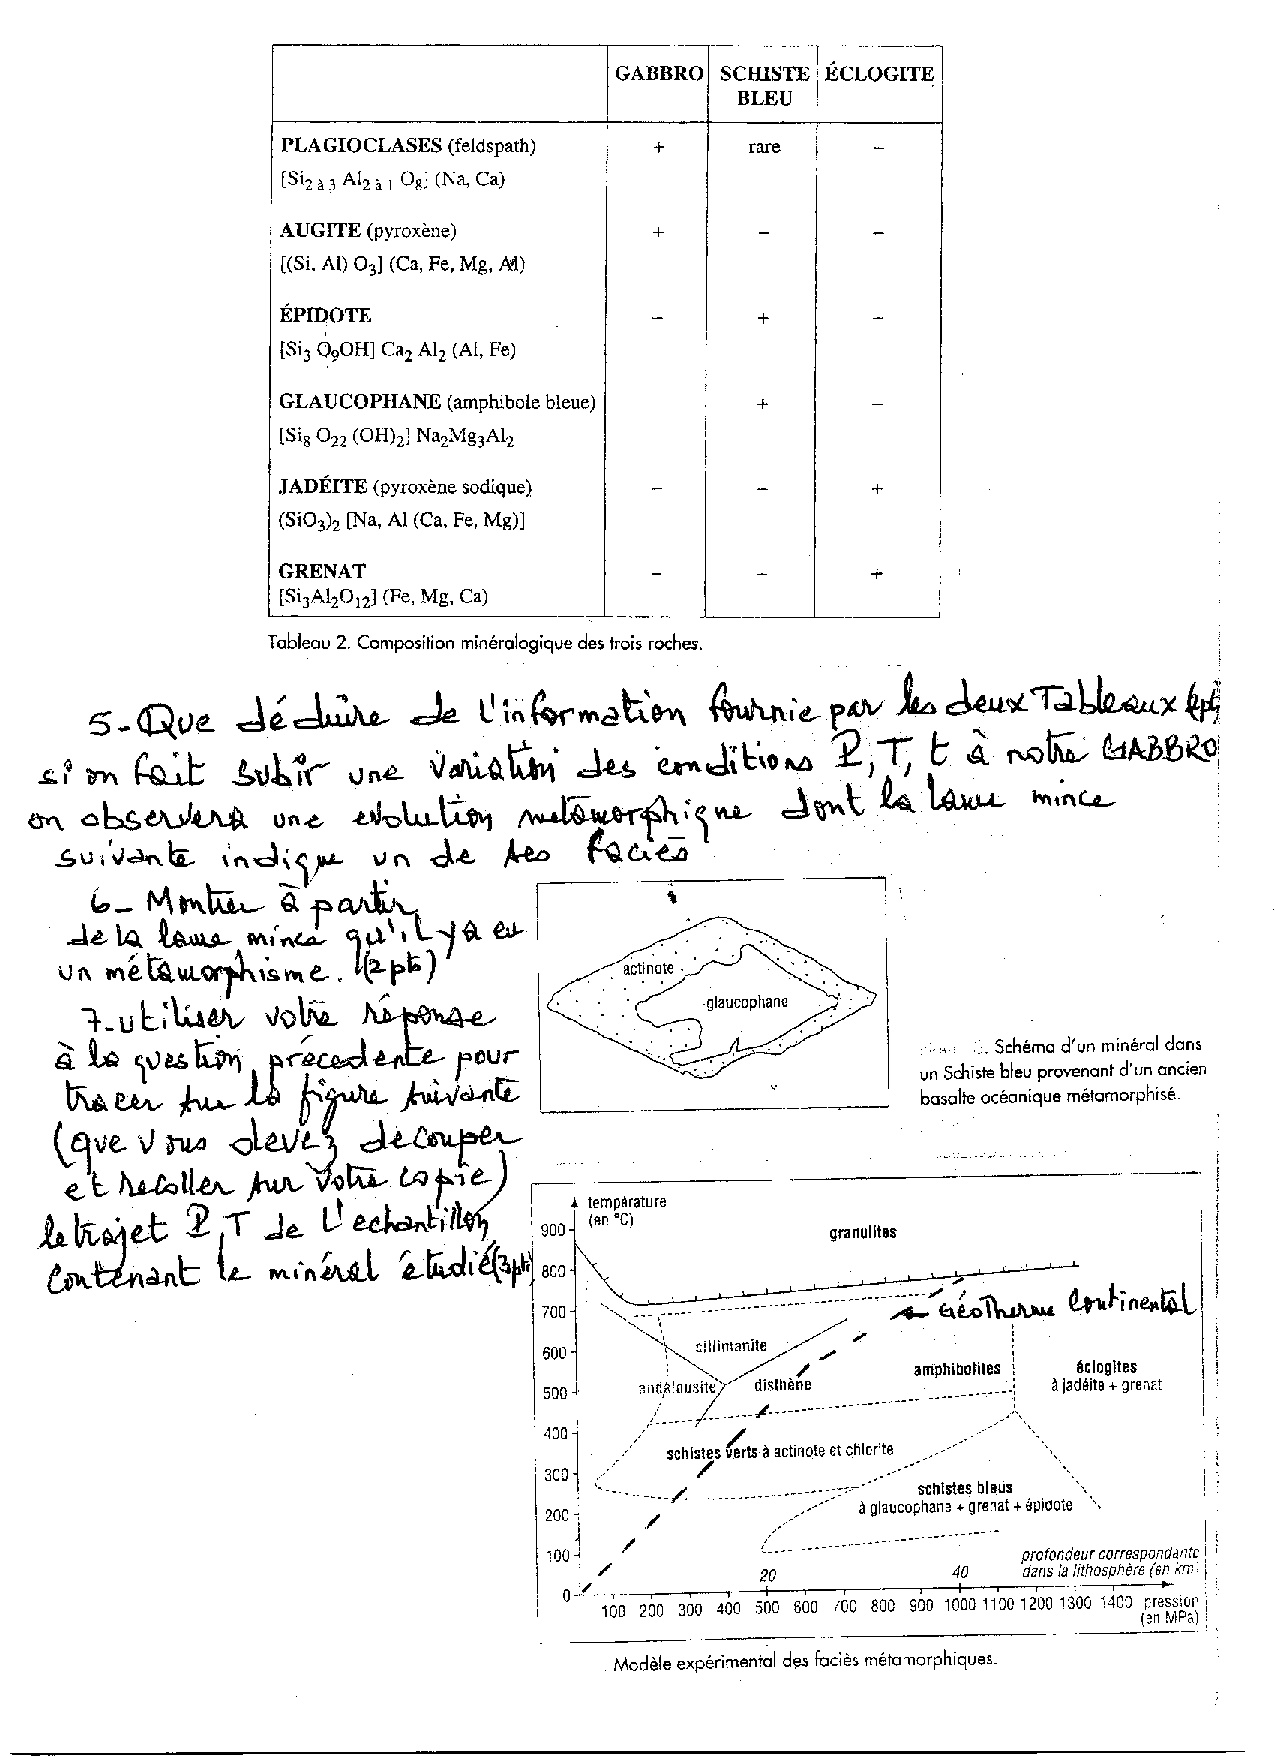 GABBRO SCHISTE BLEU ÉCLOGITE
PLAGIOCLASES (feldspath) + rare –
[Si2 à 3 Al2 à 1 O8] (Na, Ca)
AUGITE (pyroxène) + – –
[(Si, Al) O3] (Ca, Fe, Mg, Al)
ÉPIDOTE – + –
[Si3 O9OH] Ca2 Al2 (Al, Fe)
GLAUCOPHANE (amphibole bleue) + –
[Si8 O22 (OH)2] Na2Mg3Al2
JADÉITE (pyroxène sodique) – – +
(SiO3)2 [Na, Al (Ca, Fe, Mg)]
GRENAT – – +
[Si3Al2O12] (Fe, Mg, Ca)
Tableau 2. Composition minéralogique des trois roches.
5-Que déduire de l'information fournie par les deux Tableaux
si on fait subir une variation des conditions P, T, t à notre GABBRO
on observera une evolution métamorphique dont la lame mince
suivante indique un de ses faciès
6- Montrer à partir
de la lame mince qu'il y a eu
un métamorphisme. (2pt)
7-utiliser votre réponse
à la question précedente pour
tracer sur la figure suivante
(que vous devez découper
et recoller sur votre copie)
le trajet P,T de l'echantillon
contenant le minéral étudié (3pt)
actinote
glaucophane
Schéma d'un minéral dans
un Schiste bleu provenant d'un ancien
basalte océanique métamorphisé.
température
(en °C)
900
granulites
800
700
GéoTherme Continental
600
sillimanite
amphibolites
éclogites
à jadéite + grenat
500
andalousite
disthène
400
schistes verts à actinote et chlorite
300
schistes bleus
à glaucophane + grenat + épidote
200
100
profondeur correspondante
dans la lithosphère (en km)
20 40
0
100 200 300 400 500 600 700 800 900 1000 1100 1200 1300 1400 pression
(en MPa)
Modèle expérimental des faciès métamorphiques.